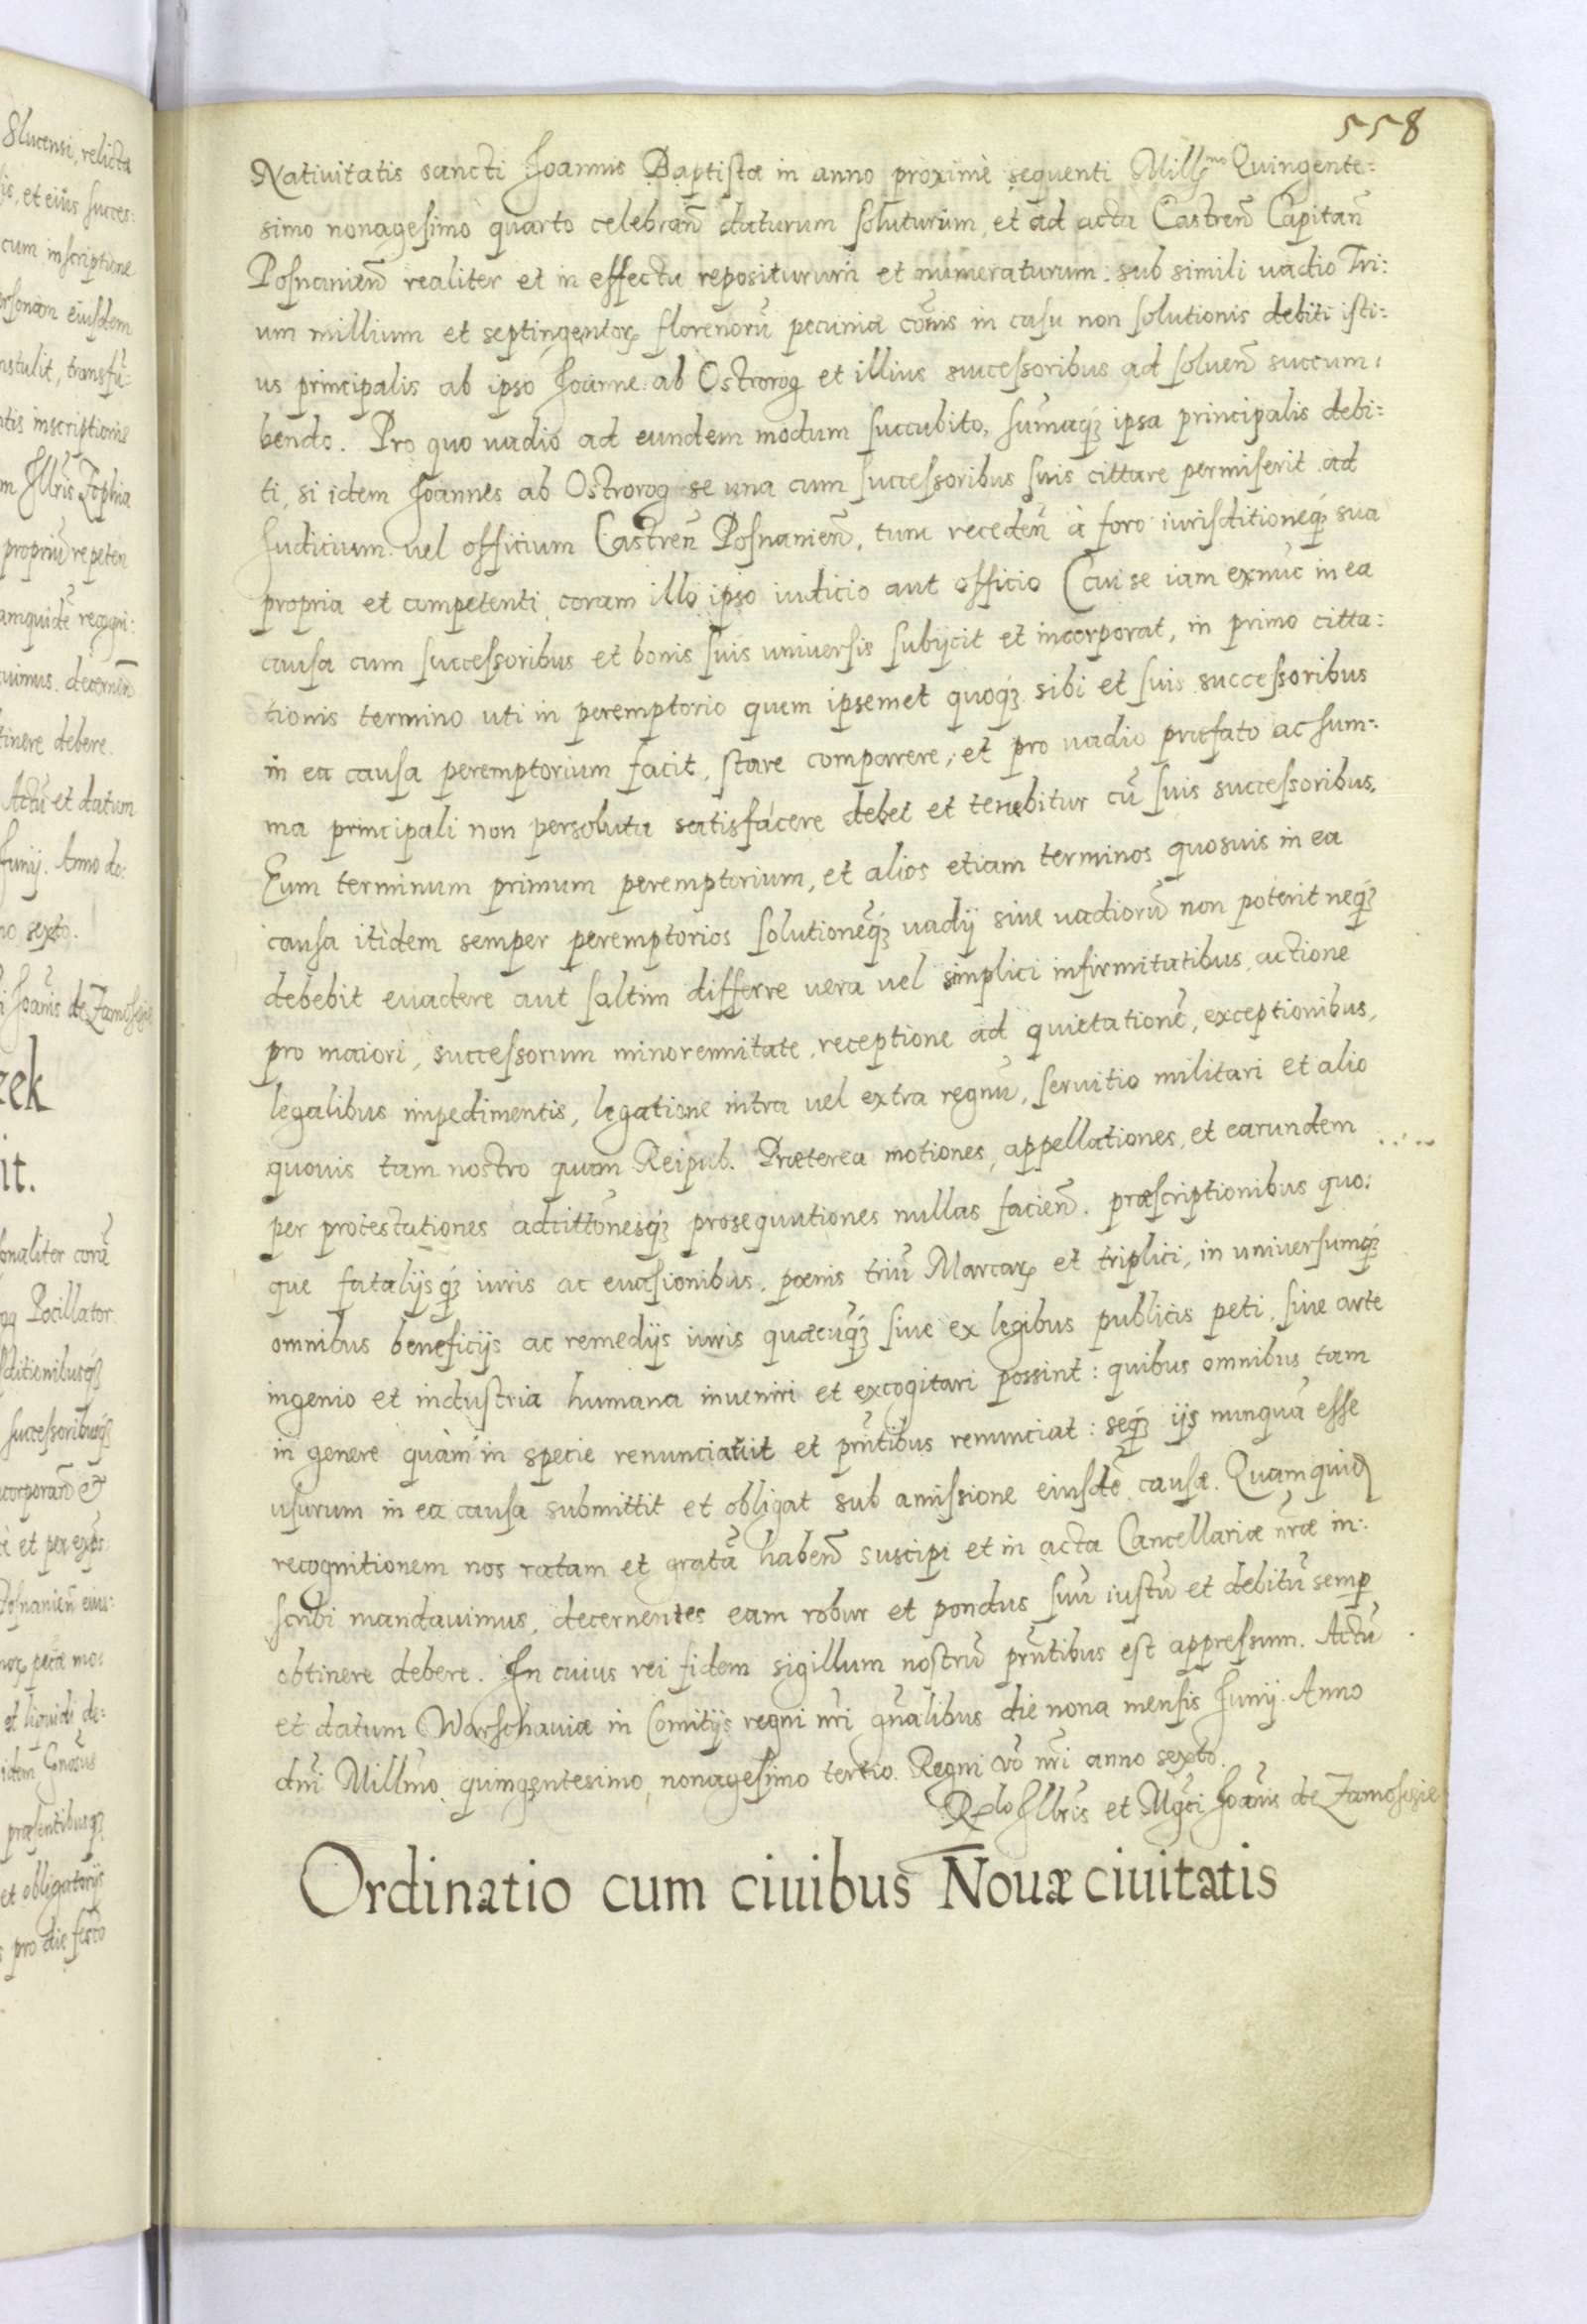 558
Natiuitatis sancti Joannis Baptistæ in anno proximè sequenti Mill<sup>mo</sup> Quingente:
simo nonagesimo quarto celebrañ daturum soluturum, et ad acta Castreñ Capitañ
Posnanieñ realiter et in effectu repositurum et numeraturum: sub simili uadio Tri:
um millium et septingentorꝝ florenorũ pecuniæ com̃is in casu non solutionis debiti isti:
us principalis ab ipso Joanne ab Ostrorog et illius successoribus ad solueñ succum:
bendo. Pro quo uadio ad eundem modum succubito, sum̃aqꝫ ipsa principalis debi:
ti, si idem Joannes ab Ostrorog se una cum successoribus suis cittare permiserit ad
Judicium uel officium Castreñ Posnanieñ, tunc recedeñ à foro iurisditioneqꝫ sua
propria et competenti coram illo ipso iudicio aut officio (cui se iam exnũc in ea
causa cum successoribus et bonis suis uniuersis subijcit et incorporat, in primo citta:
tionis termino uti in peremptorio quem ipsemet quoqꝫ sibi et suis successoribus
in ea causa peremptorium facit, stare comparere, et pro uadio præfato ac sum:
ma principali non persoluta satisfacere debet et tenebitur cũ suis successoribus.
Eum terminum primum peremptorium, et alios etiam terminos quosuis in ea
causa itidem semper peremptorios solutionẽqꝫ uadij siue uadiorũ non poterit neqꝫ
debebit euadere aut saltim differre uera uel simplici infirmitatibus, actione
pro maiori, successorum minorennitate, receptione ad quietationẽ, exceptionibus,
legalibus impedimentis, legatione intra uel extra regnũ, seruitio militari et alio
quouis tam nostro quam Reipub. Præterea motiones, appellationes, et earundem
per protestationes adcittõnesqꝫ prosequutiones nullas facieñ. præscriptionibus quo:
que fatalijsqꝫ iuris ac euasionibus. pœnis triũ Marcarꝝ et triplici, in uniuersumqꝫ
omnibus beneficijs ac remedijs iuris quæcũqꝫ siue ex legibus publicis peti, siue arte
ingenio et industria humana inueniri et excogitari possint: quibus omnibus tam
in genere quàm in specie renunciauit et prñtibus renunciat: seqꝫ ijs nunquã esse
usurum in ea causa submittit et obligat sub amissione eiusdẽ causæ. Quamquidẽ
recognitionem nos ratam et gratã habeñ suscipi et in acta Cancellariæ nr̃æ in:
scribi mandauimus, decernentes eam robur et pondus suũ iustũ et debitũ semp̱
obtinere debere. In cuius rei fidem sigillum nostrũ prñtibus est appressum. Actũ
et datum Warschauiæ in Comitijs regni nr̃i gñalibus die nona mensis Junij. Anno
dñi Millmo. quingentesimo, nonagesimo tertio. Regni ṽo nr̃i anno sexto.
R<sup>lo</sup> Jllbris et Mgci Joãnis de Zamoscie
Ordinatio cum ciuibus Nouæ ciuitatis